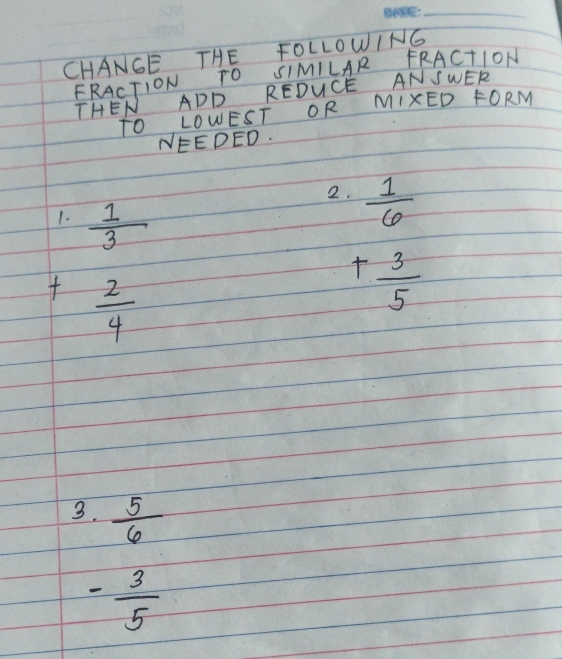 DATE:
CHANGE THE FOLLOWING
FRACTION TO SIMILAR FRACTION
THEN ADD REDUCE ANSWER
TO LOWEST OR MIXED FORM
NEEDED.
1. 1/3
+ 2/4
2. 1/6
+ 3/5
3. 5/6
- 3/5